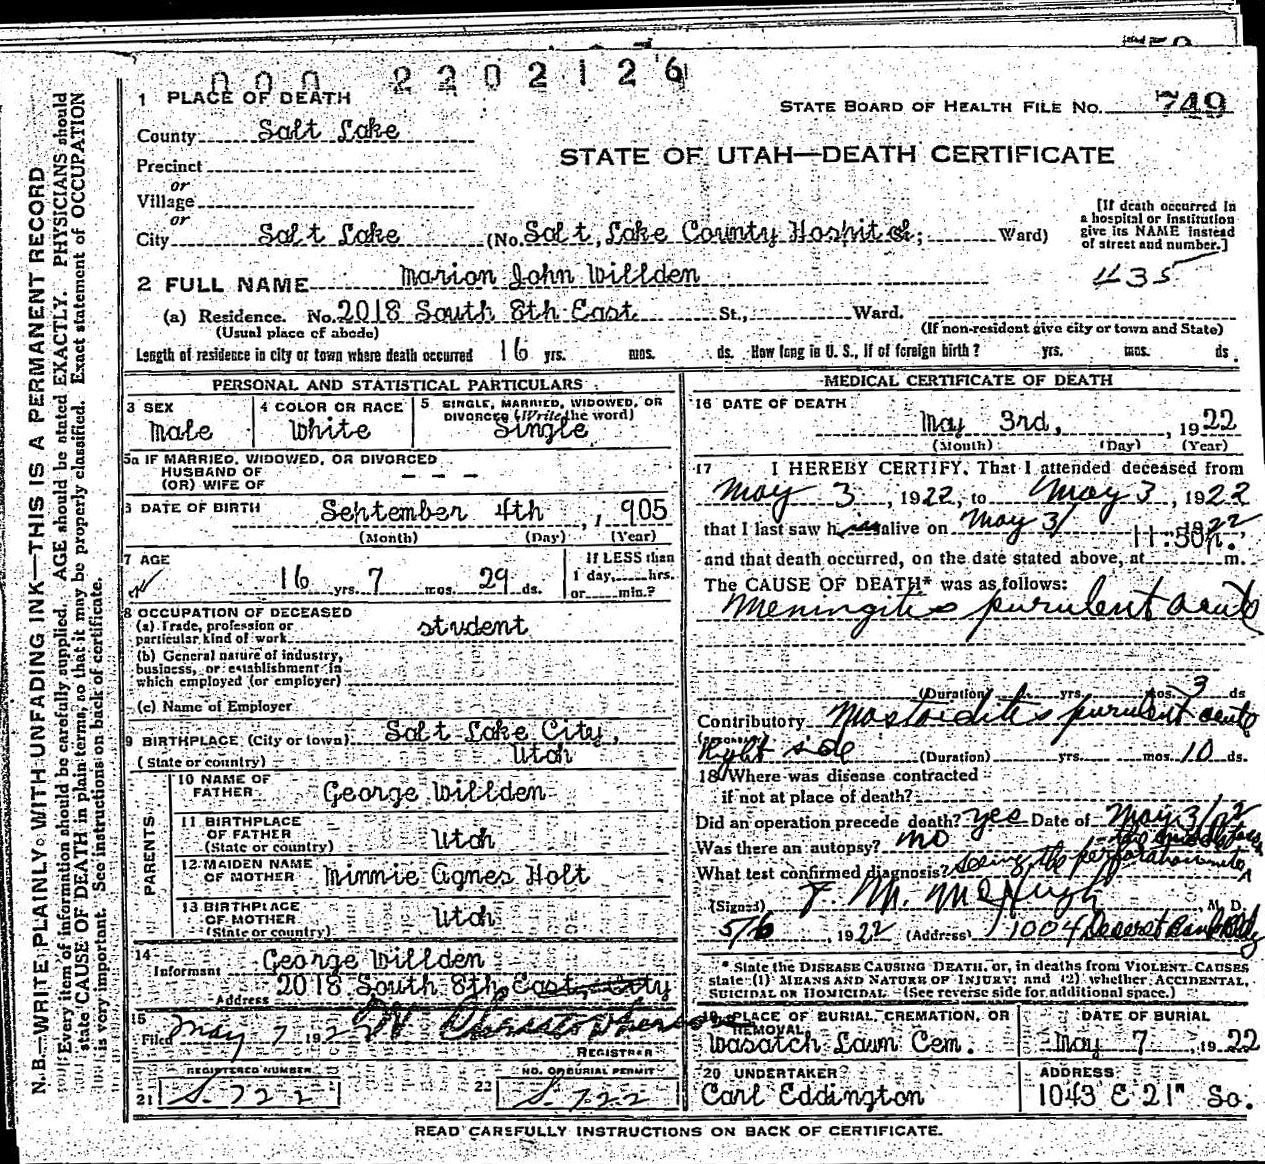 000 2202126
1 PLACE OF DEATH
STATE BOARD OF HEALTH FILE No. 749
County Salt Lake
STATE OF UTAH—DEATH CERTIFICATE
Precinct
or
Village
or
City Salt Lake (No. Salt Lake County Hospital; Ward)
[If death occurred in
a hospital or institution
give its NAME instead
of street and number.]
435
2 FULL NAME Marion John Willden
(a) Residence. No. 2018 South 8th East St., Ward.
(Usual place of abode) (If non-resident give city or town and State)
Length of residence in city or town where death occurred 16 yrs. mos. ds. How long in U. S., if of foreign birth? yrs. mos. ds.
PERSONAL AND STATISTICAL PARTICULARS
3 SEX
Male
4 COLOR OR RACE
White
5 SINGLE, MARRIED, WIDOWED, OR
DIVORCED (Write the word)
Single
5a IF MARRIED, WIDOWED, OR DIVORCED
HUSBAND OF
(OR) WIFE OF - - -
6 DATE OF BIRTH September 4th, 1905
(Month) (Day) (Year)
7 AGE
16 yrs. 7 mos. 29 ds.
If LESS than
1 day, hrs.
or min.?
8 OCCUPATION OF DECEASED
(a) Trade, profession or
particular kind of work student
(b) General nature of industry,
business, or establishment in
which employed (or employer)
(c) Name of Employer
9 BIRTHPLACE (City or town) Salt Lake City,
(State or country) Utah
PARENTS
10 NAME OF
FATHER George Willden
11 BIRTHPLACE
OF FATHER
(State or country) Utah
12 MAIDEN NAME
OF MOTHER Minnie Agnes Holt
13 BIRTHPLACE
OF MOTHER
(State or country) Utah
14
Informant George Willden
Address 2018 South 8th East, City
15
Filed May 7 1922
REGISTRAR
REGISTERED NUMBER
21 S. 722
NO. OF BURIAL PERMIT
22 S. 722
MEDICAL CERTIFICATE OF DEATH
16 DATE OF DEATH
May 3rd, , 1922
(Month) (Day) (Year)
17 I HEREBY CERTIFY, That I attended deceased from
May 3, 1922, to May 3, 1922
that I last saw h alive on May 3/ 1922
and that death occurred, on the date stated above, at 11:50 P. m.
The CAUSE OF DEATH* was as follows:
Meningitis purulent acute
(Duration) yrs. mos. 3 ds
Contributory Mastoiditis purulent acute
Right side (Duration) yrs. mos. 10 ds.
18 Where was disease contracted
if not at place of death?
Did an operation precede death? yes Date of May 3/22
Was there an autopsy? no
What test confirmed diagnosis? seeing the perforation into
(Signed) J. M. McHugh, M. D.
5/6, 1922 (Address) 1004 Deseret Bank Bldg
* State the DISEASE CAUSING DEATH, or, in deaths from VIOLENT CAUSES
state (1) MEANS AND NATURE OF INJURY; and (2) whether ACCIDENTAL,
SUICIDAL OR HOMICIDAL. (See reverse side for additional space.)
19 PLACE OF BURIAL, CREMATION, OR
REMOVAL
Wasatch Lawn Cem.
DATE OF BURIAL
May 7, 1922
20 UNDERTAKER
Carl Eddington
ADDRESS
1043 E 21" So.
READ CAREFULLY INSTRUCTIONS ON BACK OF CERTIFICATE.
N. B.—WRITE PLAINLY WITH UNFADING INK—THIS IS A PERMANENT RECORD
Every item of information should be carefully supplied. AGE should be stated EXACTLY. PHYSICIANS should
state CAUSE OF DEATH in plain terms, so that it may be properly classified. Exact statement of OCCUPATION
is very important. See instructions on back of certificate.